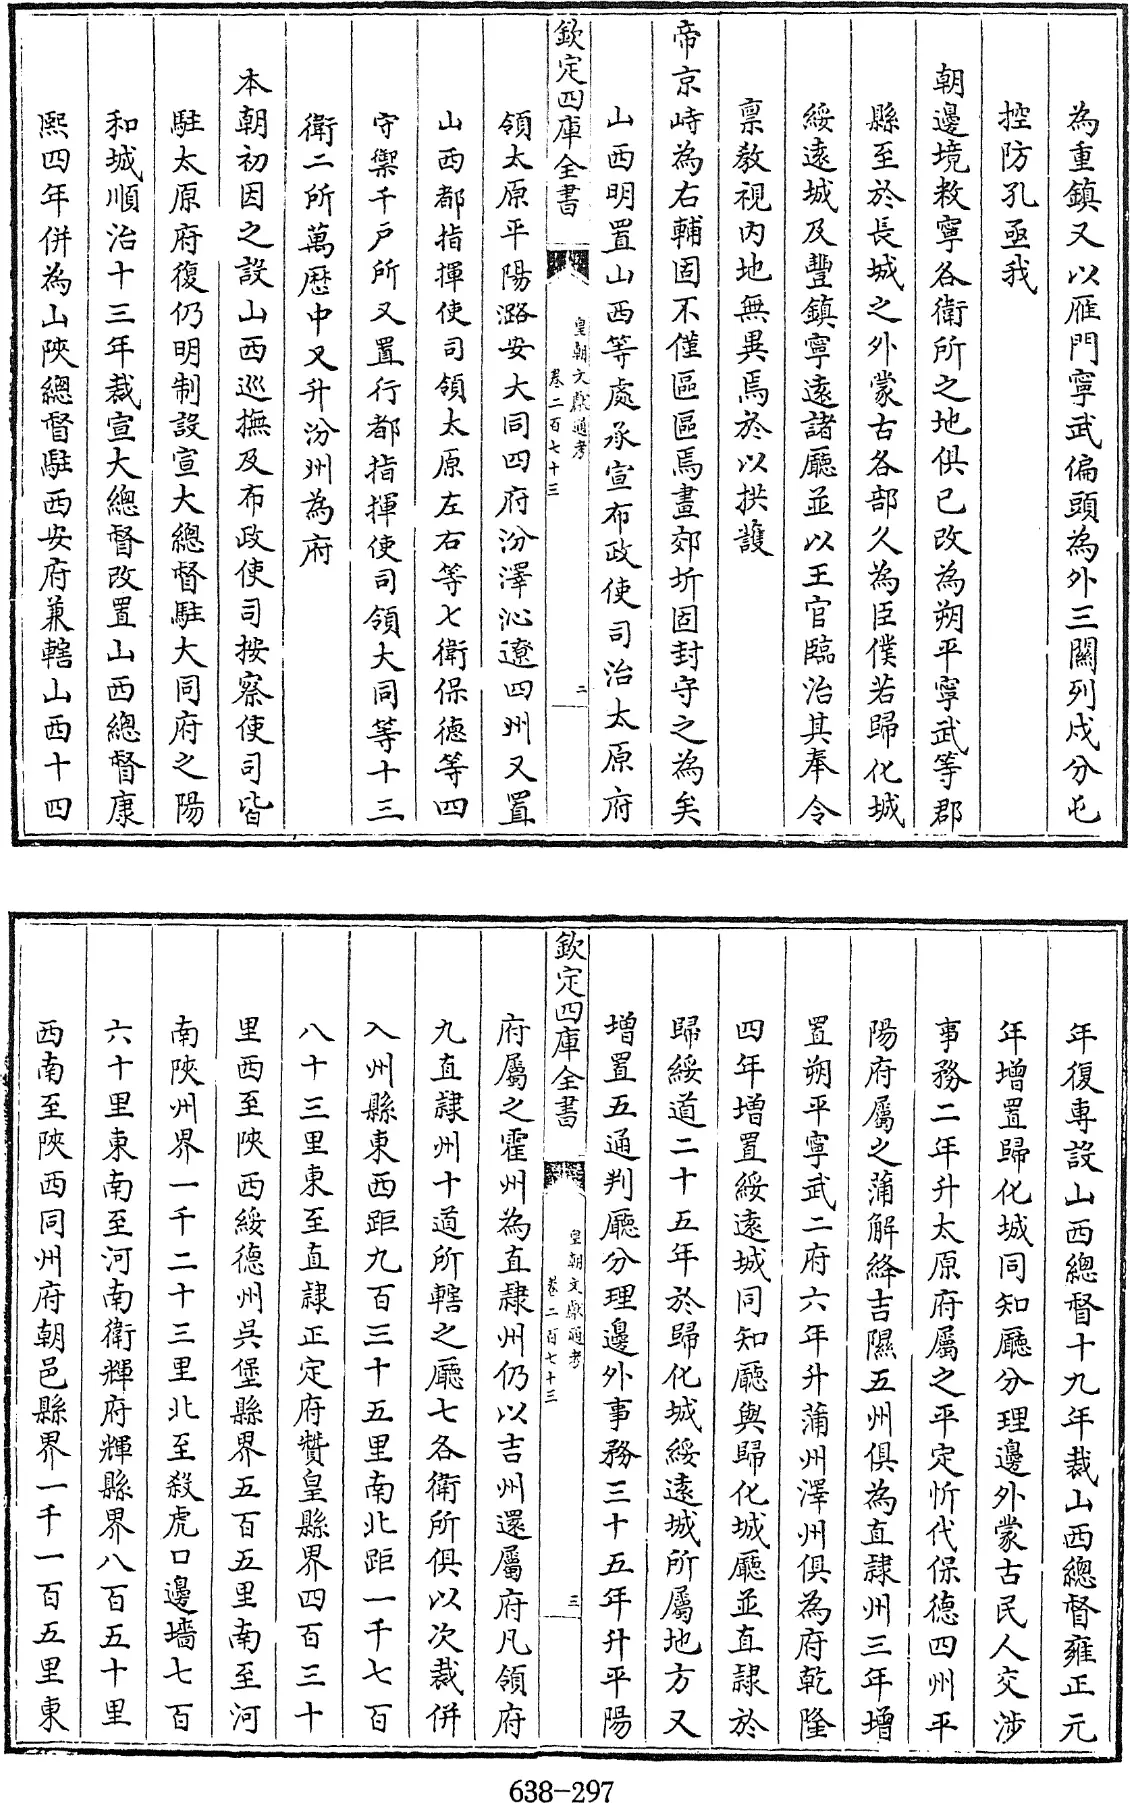 為重鎮又以雁門寧武偏頭為外三關列戍分屯
控防孔亟我
朝邊境敉寧各衛所之地俱已改為朔平寧武等郡
縣至於長城之外蒙古各部久為臣僕若歸化城
綏遠城及豐鎮寧遠諸廳並以王官臨治其奉令
禀教視内地無異焉於以拱䕶
帝京峙為右輔固不僅區區焉畫郊圻固封守之為矣
山西明置山西等處承宣布政使司治太原府
欽定四庫全書
皇朝文獻通考
卷二百七十三
二
領太原平陽潞安大同四府汾澤沁遼四州又置
山西都指揮使司領太原左右等七衛保德等四
守禦千戶所又置行都指揮使司領大同等十三
衛二所萬歴中又升汾州為府
本朝初因之設山西巡撫及布政使司按察使司皆
駐太原府復仍明制設宣大總督駐大同府之陽
和城順治十三年裁宣大總督改置山西總督康
熙四年併為山陝總督駐西安府兼轄山西十四
年復專設山西總督十九年裁山西總督雍正元
年增置歸化城同知廳分理邊外蒙古民人交涉
事務二年升太原府屬之平定忻代保德四州平
陽府屬之蒲解絳吉隰五州俱為直隸州三年增
置朔平寧武二府六年升蒲州澤州俱為府乾隆
四年增置綏遠城同知廳與歸化城廳並直隸於
歸綏道二十五年於歸化城綏遠城所屬地方又
增置五通判廳分理邊外事務三十五年升平陽
欽定四庫全書
皇朝文獻通考
卷二百七十三
三
府屬之霍州為直隸州仍以吉州還屬府凡領府
九直隸州十道所轄之廳七各衛所俱以次裁併
入州縣東西距九百三十五里南北距一千七百
八十三里東至直隸正定府贊皇縣界四百三十
里西至陝西綏德州吳堡縣界五百五里南至河
南陝州界一千二十三里北至殺虎口邊墻七百
六十里東南至河南衛輝府輝縣界八百五十里
西南至陝西同州府朝邑縣界一千一百五里東
638-297